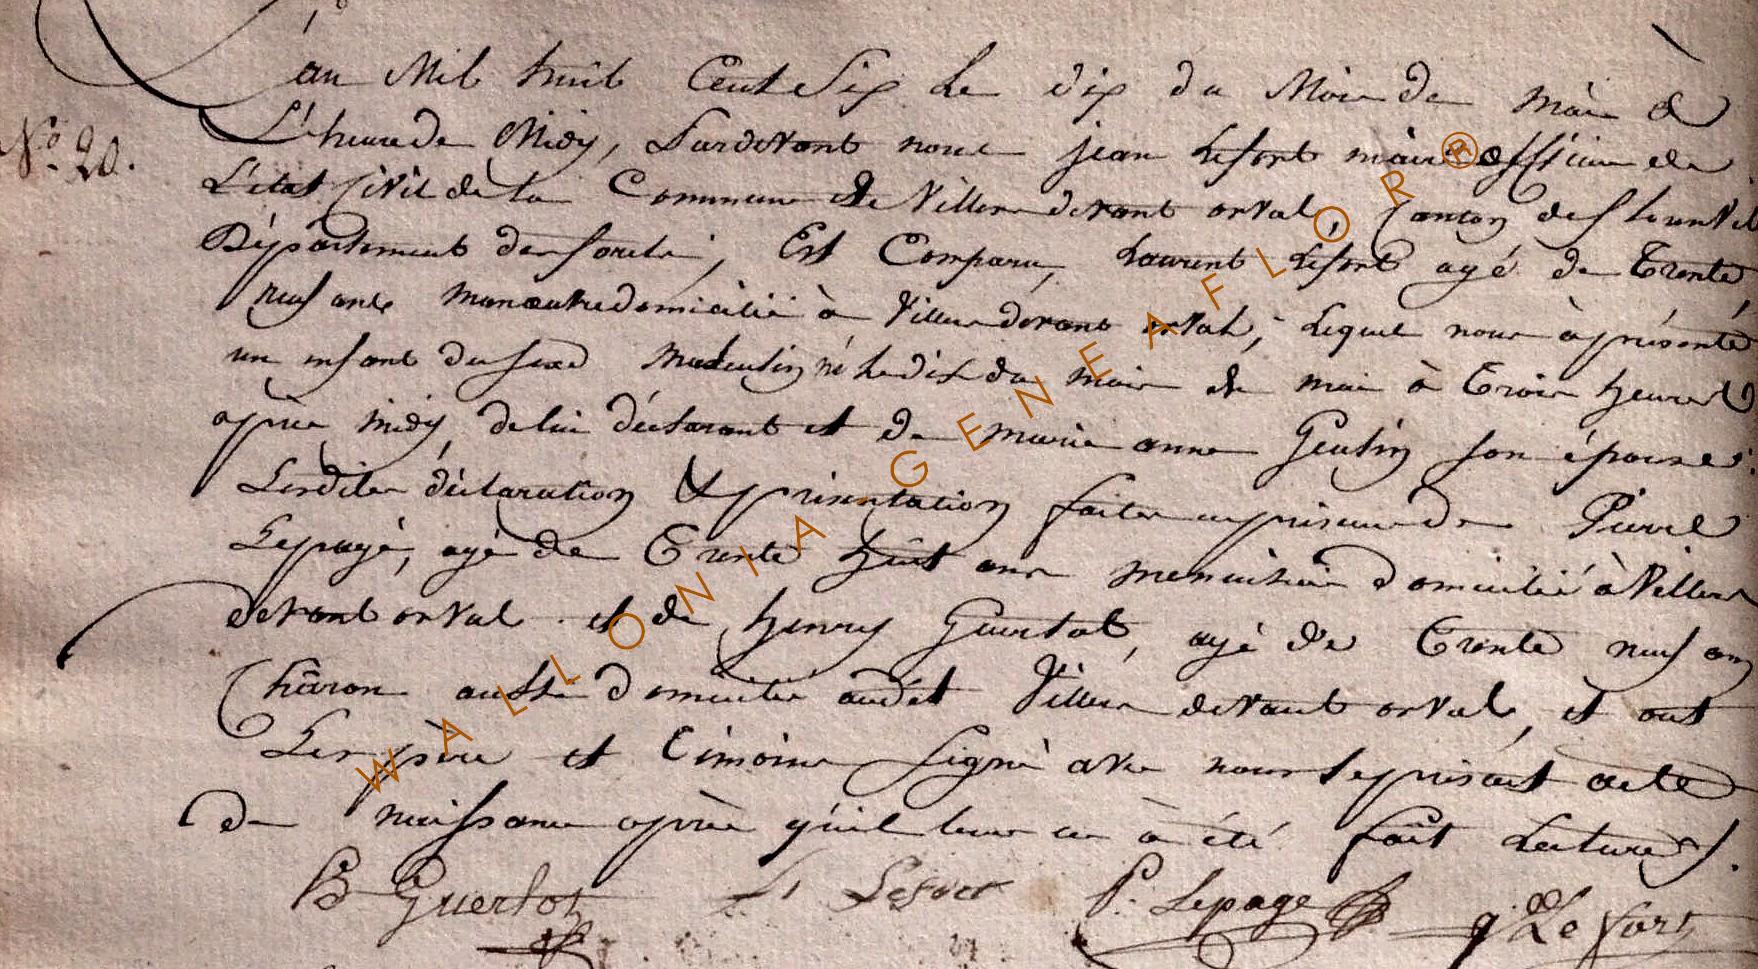 L'an Mil huit Cent Six Le dix du Mois de mai à
N.o 20.
L'heure de Midy, Pardevant nous jean Lefort maire officier de
L'état Civil de la Commune de Villers devant orval, Canton de florenvil
Département des forets, Est Comparu, Laurent Lefort agé de Trente
neuf ans manœuvre domicilié à Villers devant orval, Lequel nous à présenté
un enfant du sexe Masculin né Le dix du mois de mai à Trois heures
après midy, de lui déclarant et de marie anne Genlin son épouse
Lesdites déclaration & présentation faites en présence de Pierre
Lepage, agé de Trente huit ans menuisier domicilié à Villers
devant orval et de henry Guerlot, agé de Trente neuf ans
Charon aussi domicilié audit Villers devant orval, et ont
Les père et témoins signé avec nous le présent acte
de naissance après qu'il leur en à été fait Lecture.
Guerlot L Lefort P. Lepage J Le fort
WALLONIA GENEAFLOR ®